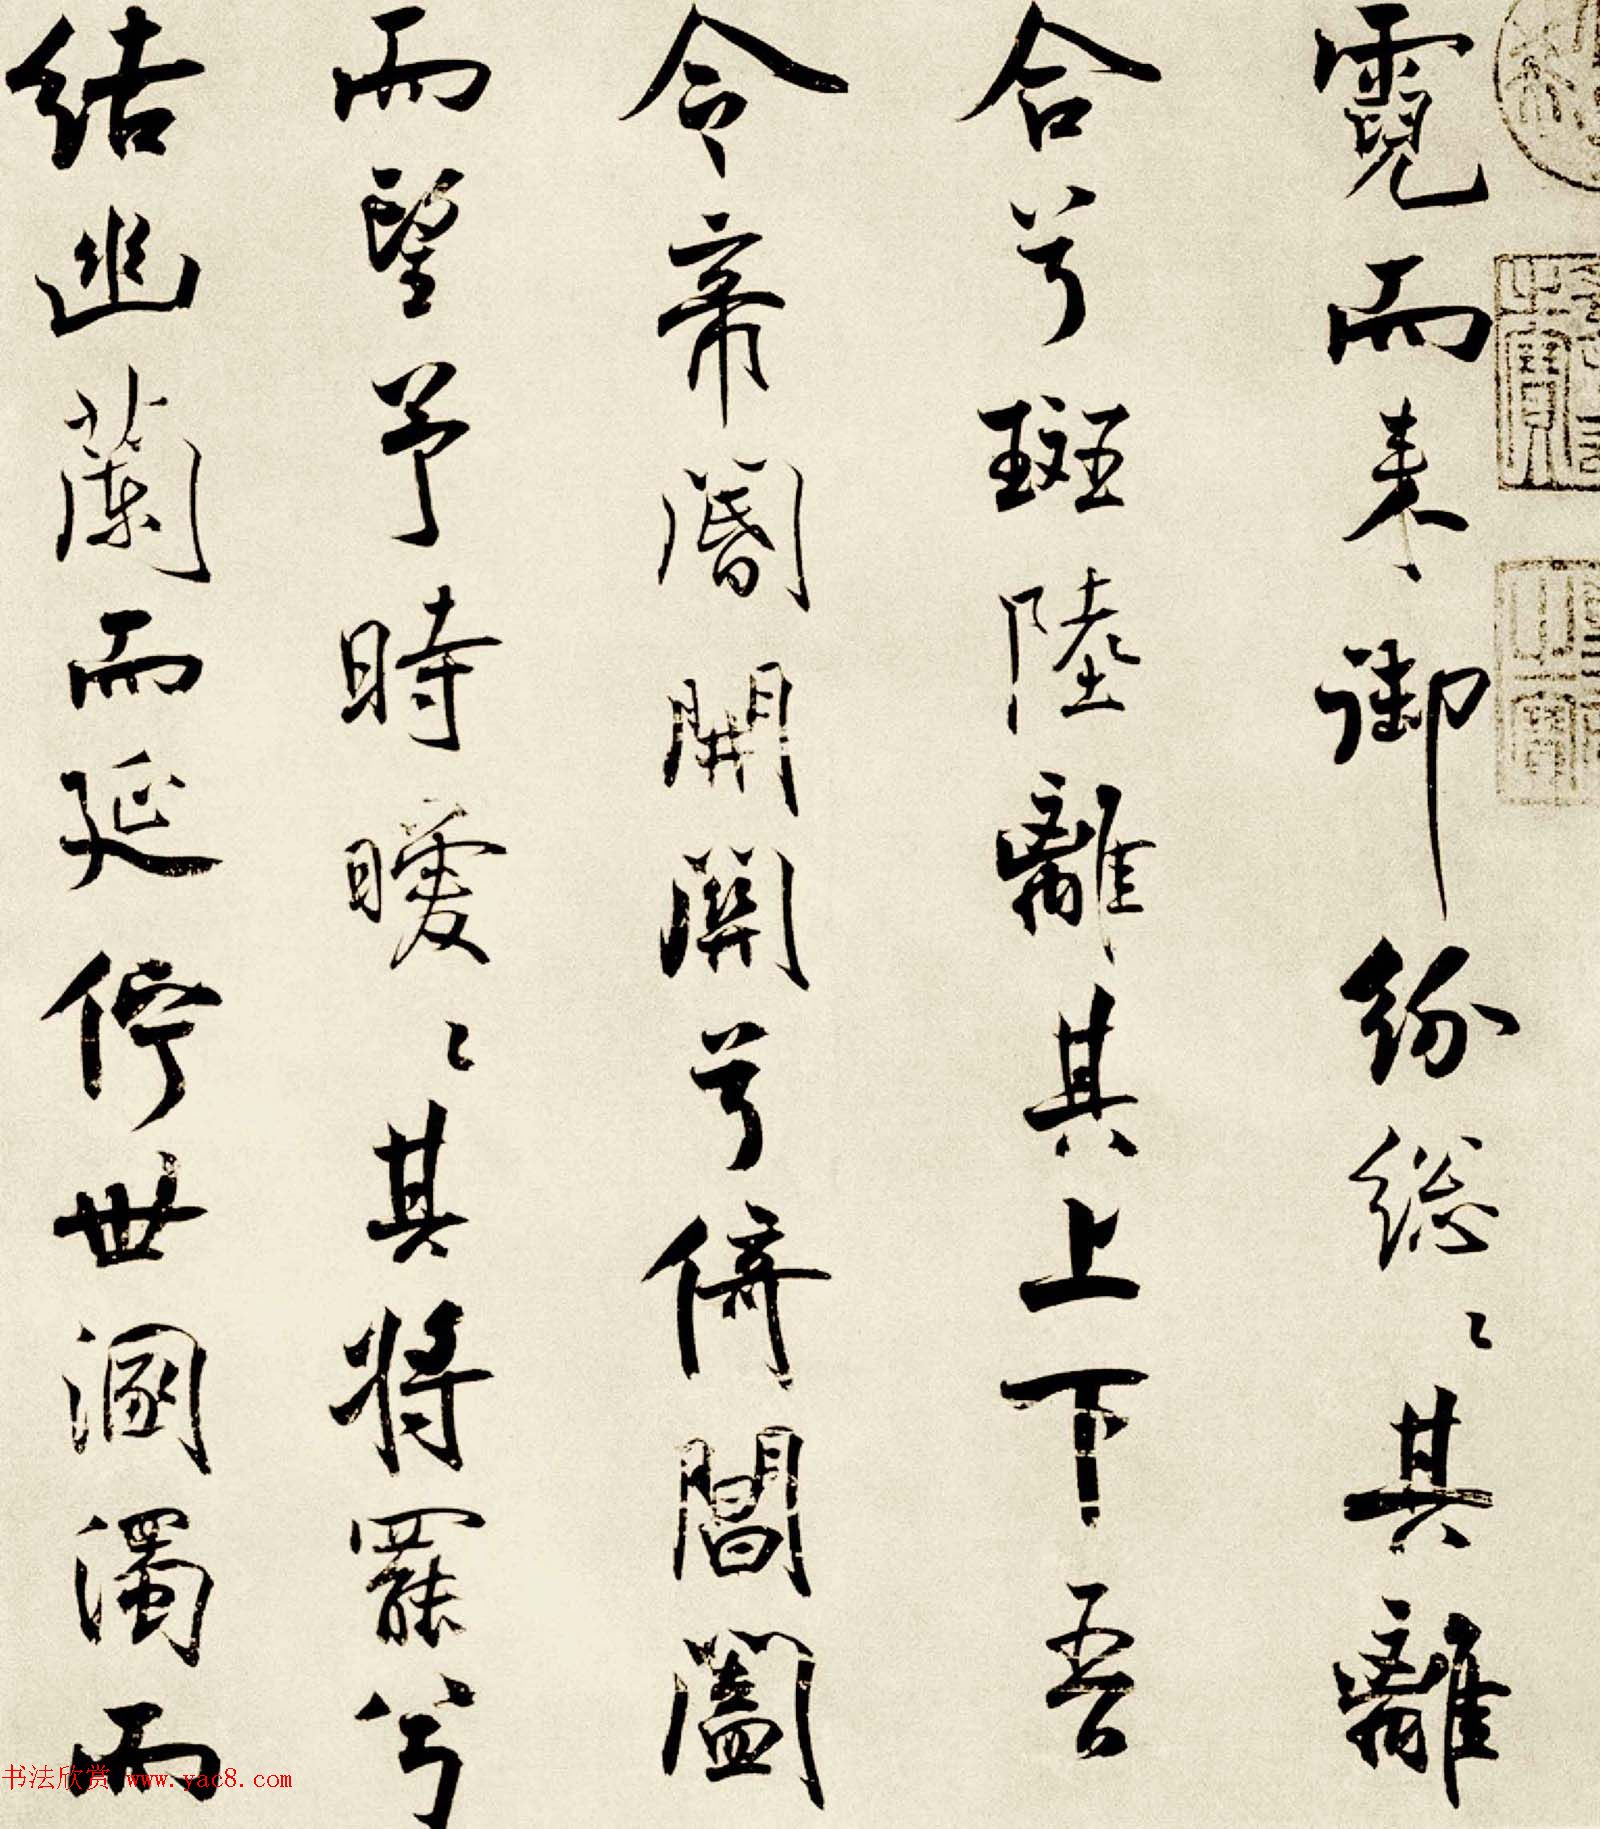 霓而来御紛総〻其離
合兮斑陸離其上下吾
令帝閽開關兮倚閶闔
而望予時曖〻其将罷兮
結幽蘭而延佇世溷濁而
之寶
书法欣赏 www.yac8.com